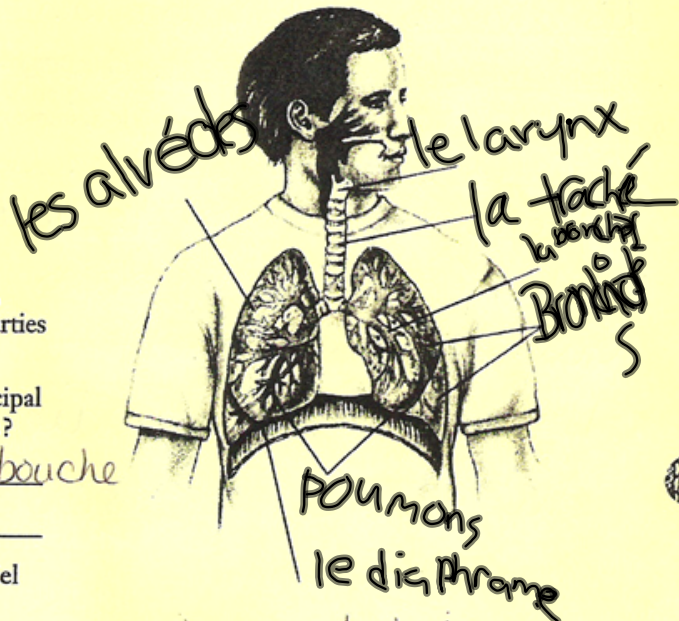 les alvécles
le larynx
la traché
la bonches
Bronchioles
rties
cipal
?
bouche
poumons
el
le diaphrame